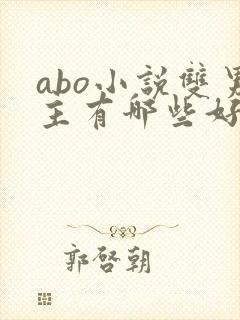 abo小説雙男
主有哪些好
郭啓朝